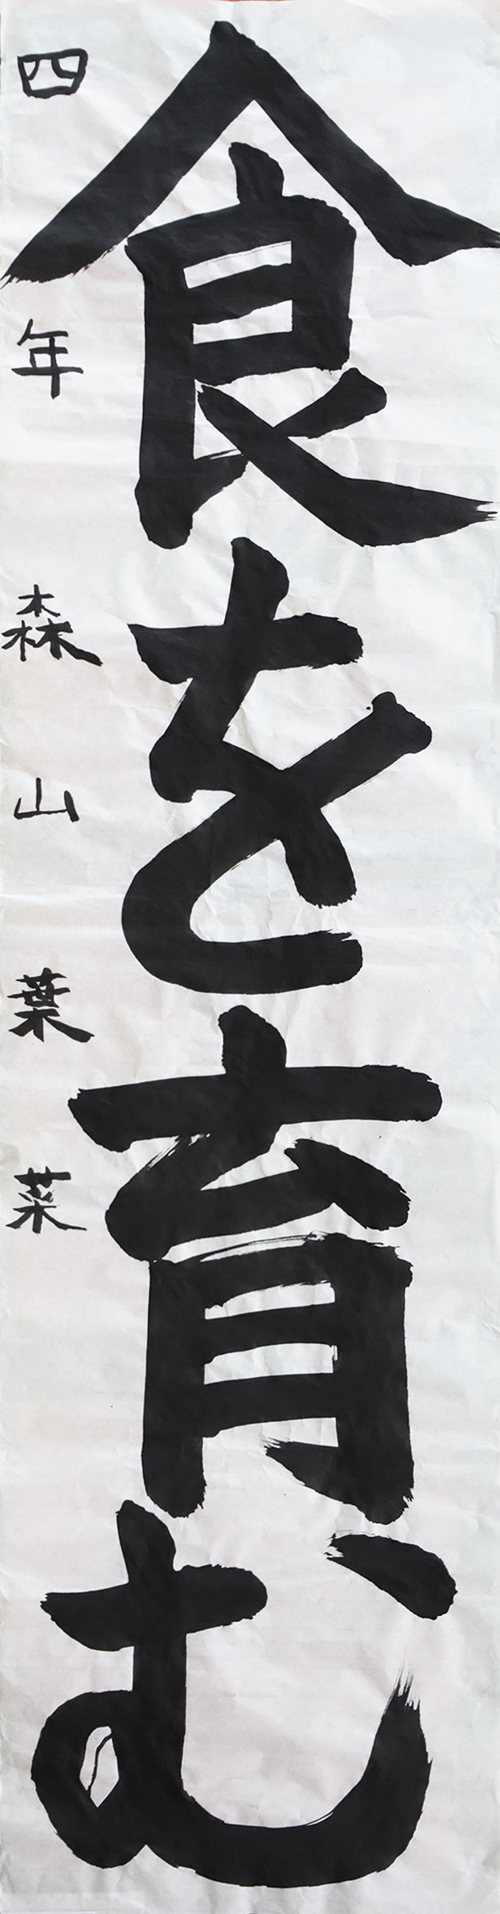 食を育む
四年 森山葉菜